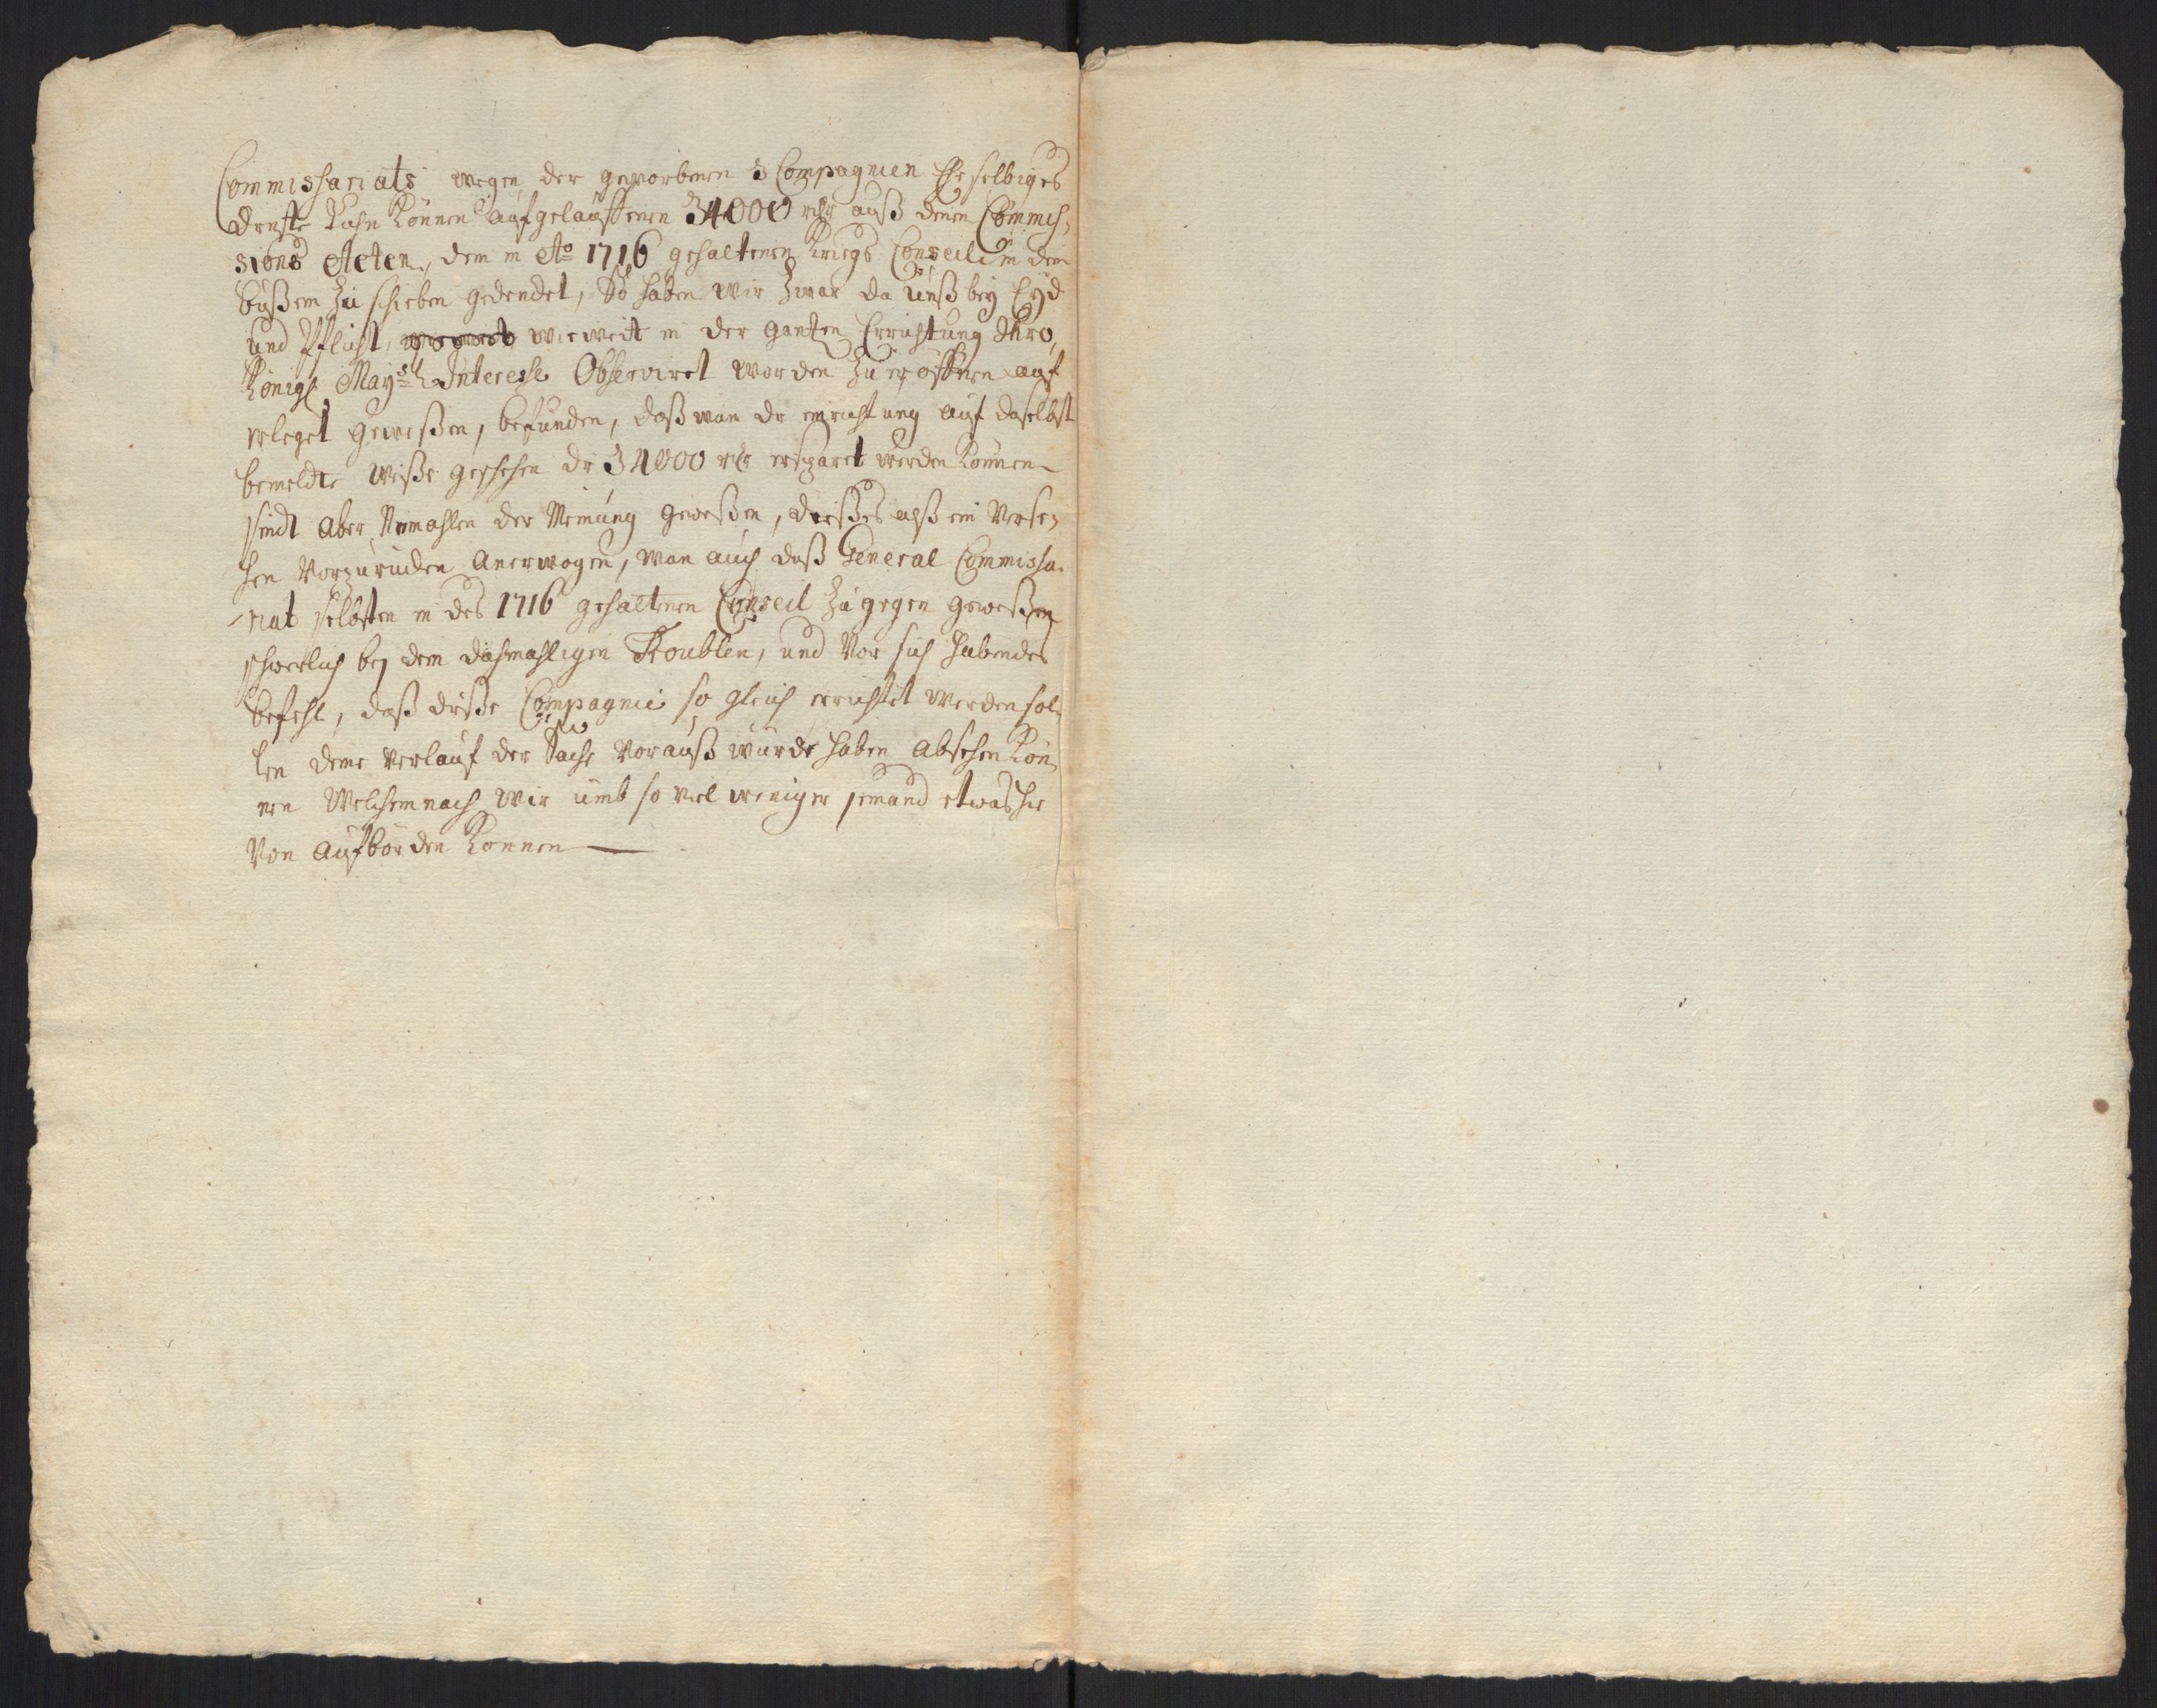 Commissariats wegen der geworbenen 3 Compagnien Ehe selbiges
dienste thun können aufgelauffenen 34000 rthr auß denen Commis-
sions Acten, dem in Ao 1716 gehaltenen Kriegs Conseil in dem
bußem zu schieben gedencket, So haben wir zwar da unß bey Eyd
und Pflicht, wie weit in der gantzen Errichtung Ihro,
Königl Mayst Interesse Observiret worden zu eröffnen auf
erleget geweßen, befunden, daß wan die einrichtung auf daselbst
bemeldte weiße geschehen die 34000 rth ersparet werden können
sindt aber niemahlen der Meinung geweßen, dießes alß ein verse-
hen vorzurücken anerwogen, wan auch daß General Commissa-
riat selbsten in des 1716 gehaltenen Conseil zu gegen geweßen
schwerlich bey dem dahmahligen Troublen, und vor sich habendes
befehl, daß dieße Compagnie so gleich errichtet werden sol-
len deme verlauf der Sache vorauß würde haben absehen kön-
nen Welchemnach wir umb so viel weniger jemand etwas hie
von aufbörden können